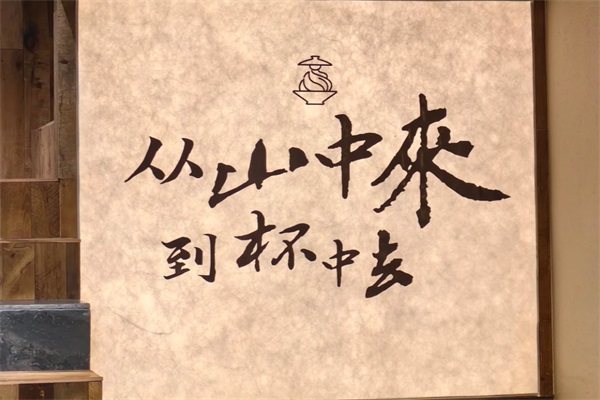 从山中來
到杯中去